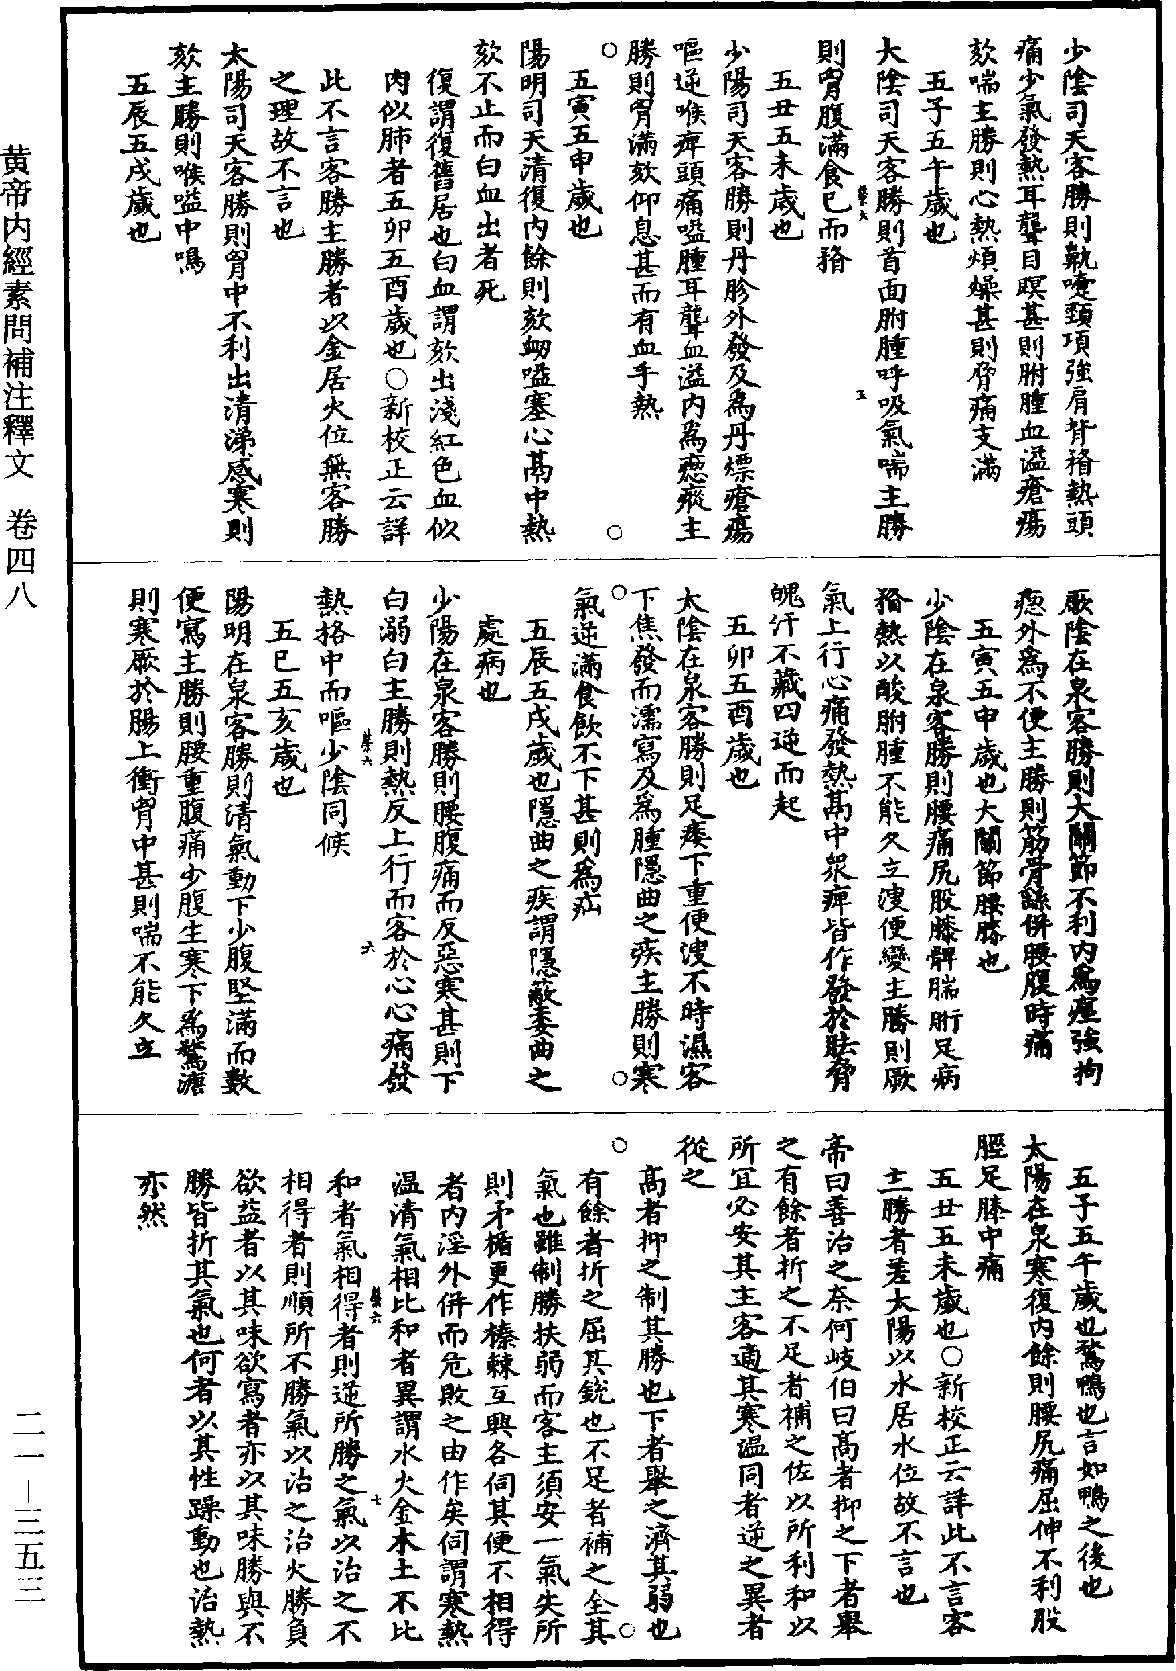 少陰司天客勝則鼽嚏頸項強肩背瞀熱頭
痛少氣發熱耳聾目瞑甚則胕腫血溢瘡瘍
欬喘主勝則心熱煩燥甚則脅痛支滿
五子五午歲也
大陰司天客勝則首面胕腫呼吸氣喘主勝
則胷腹滿食已而瞀
五丑五未歲也
少陽司天客勝則丹胗外發及爲丹熛瘡瘍
嘔逆喉痺頭痛嗌腫耳聾血溢內爲瘛瘲主
勝則胷滿欬仰息甚而有血手熱
五寅五申歲也
陽明司天清復內餘則欬衂嗌塞心鬲中熱
欬不止而白血出者死
復謂復舊居也白血謂欬出淺紅色血似
肉似肺者五卯五酉歲也○新校正云詳
此不言客勝主勝者以金居火位無客勝
之理故不言也
太陽司天客勝則胷中不利出清涕感寒則
欬主勝則喉嗌中鳴
五辰五戌歲也
厥陰在泉客勝則大關節不利內爲痙強拘
瘛外爲不便主勝則筋骨繇併腰腹時痛
五寅五申歲也大關節腰膝也
少陰在泉客勝則腰痛尻股膝髀腨䯒足病
瞀熱以酸胕腫不能久立溲便變主勝則厥
氣上行心痛發熱鬲中衆痺皆作發於胠脅
魄汗不藏四逆而起
五卯五酉歲也
太陰在泉客勝則足痿下重便溲不時濕客
下焦發而濡寫及爲腫隱曲之疾主勝則寒
氣逆滿食飲不下甚則爲疝
五辰五戌歲也隱曲之疾謂隱蔽委曲之
處病也
少陽在泉客勝則腰腹痛而反惡寒甚則下
白溺白主勝則熱反上行而客於心心痛發
熱格中而嘔少陰同候
五巳五亥歲也
陽明在泉客勝則清氣動下少腹堅滿而數
便寫主勝則腰重腹痛少腹生寒下爲鶩溏
則寒厥於腸上衝胷中甚則喘不能久立
五子五午歲也鶩鴨也言如鴨之後也
太陽在泉寒復內餘則腰尻痛屈伸不利股
脛足膝中痛
五丑五未歲也○新校正云詳此不言客
主勝者蓋太陽以水居水位故不言也
帝曰善治之奈何岐伯曰高者抑之下者舉
之有餘者折之不足者補之佐以所利和以
所宜必安其主客適其寒溫同者逆之異者
從之
高者抑之制其勝也下者舉之濟其弱也
有餘者折之屈其銳也不足者補之全其
氣也雖制勝扶弱而客主須安一氣失所
則矛楯更作榛棘互興各伺其便不相得
者內淫外併而危敗之由作矣伺謂寒熱
溫清氣相比和者異謂水火金木土不比
和者氣相得者則逆所勝之氣以治之不
相得者則順所不勝氣以治之治火勝負
欲益者以其味欲寫者亦以其味勝與不
勝皆折其氣也何者以其性躁動也治熱
亦然
黄帝内經素問補注釋文　卷四八
二一—三五三